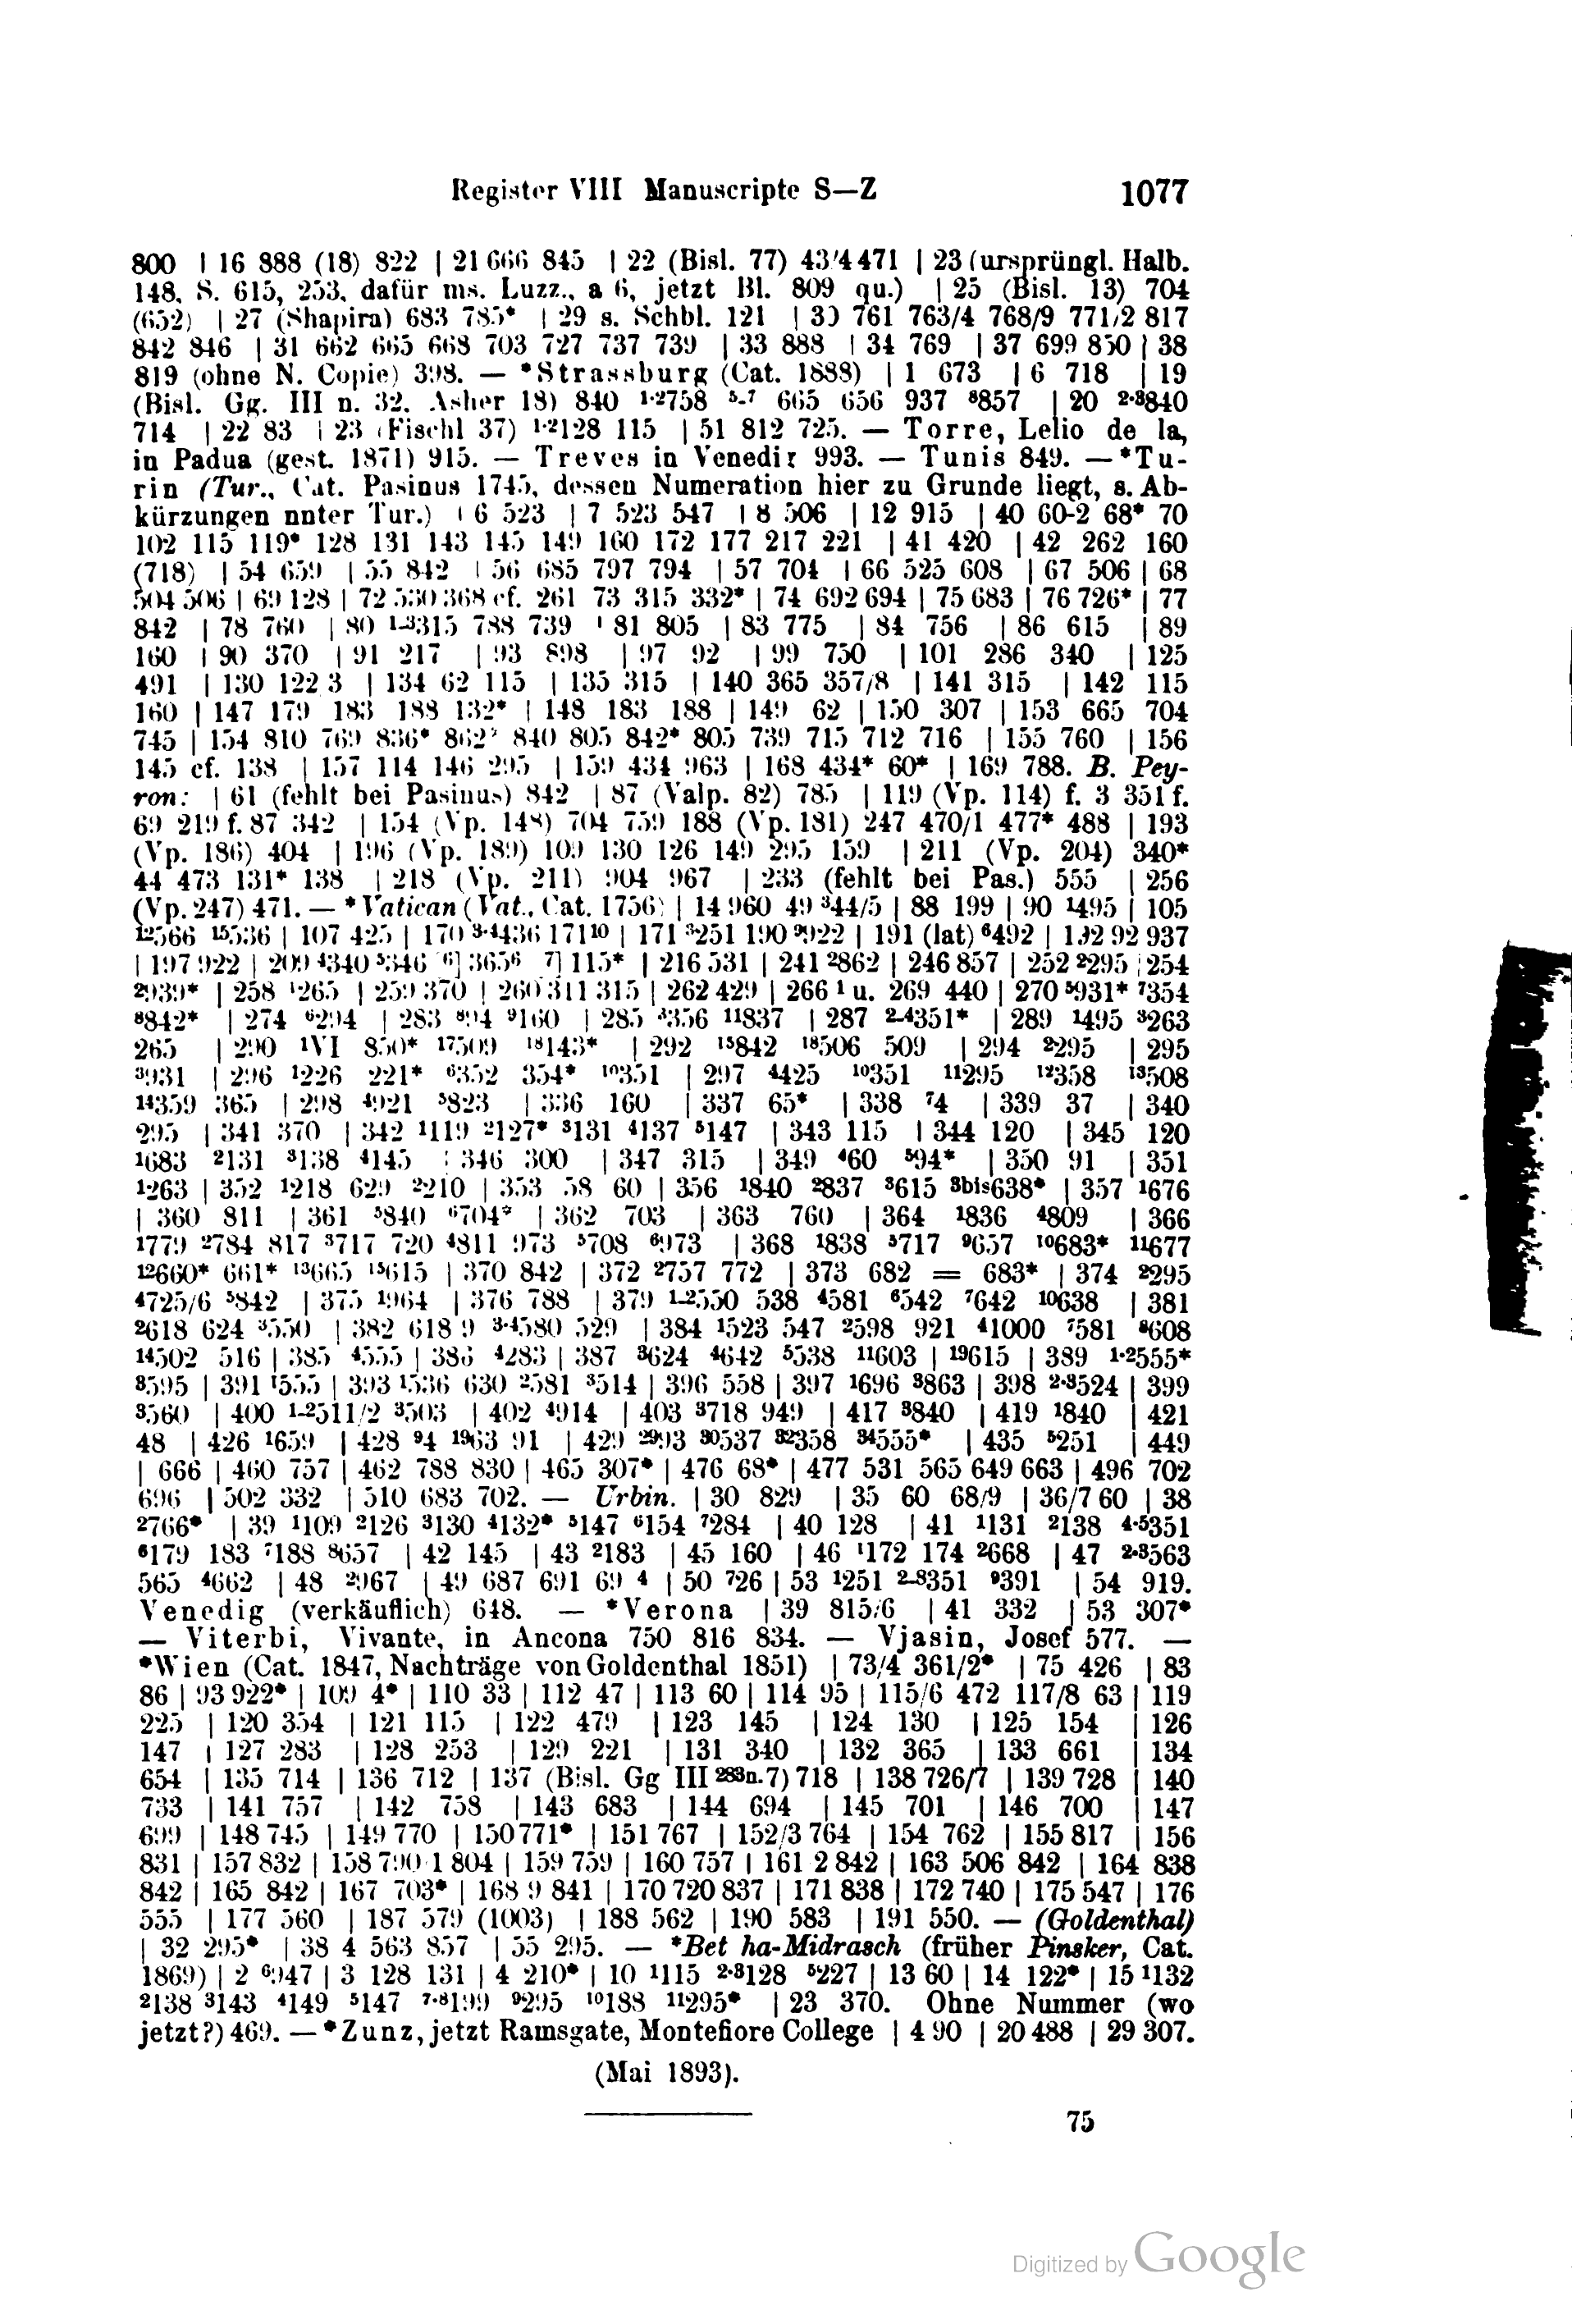 Register VIII Manuscripte S—Z 1077
800 | 16 888 (18) 822 | 21 666 845 | 22 (Bisl. 77) 43/4 471 | 23 (ursprüngl. Halb.
148, S. 615, 253, dafür ms. Luzz., a 6, jetzt Bl. 809 qu.) | 25 (Bisl. 13) 704
(652) | 27 (Shapira) 683 785* | 29 s. Schbl. 121 | 30 761 763/4 768/9 771/2 817
842 846 | 31 662 665 668 703 727 737 739 | 33 888 | 34 769 | 37 699 850 | 38
819 (ohne N. Copie) 398. — *Strassburg (Cat. 1888) | 1 673 | 6 718 | 19
(Bisl. Gg. III n. 32. Asher 18) 840 ¹·²758 ⁵-⁷ 665 656 937 ⁸857 | 20 ²·³840
714 | 22 83 | 23 (Fischl 37) ¹·²128 115 | 51 812 725. — Torre, Lelio de la,
in Padua (gest. 1871) 915. — Treves in Venedig 993. — Tunis 849. — *Tu-
rin (Tur., Cat. Pasinus 1745, dessen Numeration hier zu Grunde liegt, s. Ab-
kürzungen nnter Tur.) | 6 523 | 7 523 547 | 8 506 | 12 915 | 40 60-2 68* 70
102 115 119* 128 131 143 145 149 160 172 177 217 221 | 41 420 | 42 262 160
(718) | 54 659 | 55 842 | 56 685 797 794 | 57 704 | 66 525 608 | 67 506 | 68
504 506 | 69 128 | 72 530 368 cf. 261 73 315 332* | 74 692 694 | 75 683 | 76 726* | 77
842 | 78 760 | 80 ¹-³315 788 739 | 81 805 | 83 775 | 84 756 | 86 615 | 89
160 | 90 370 | 91 217 | 93 898 | 97 92 | 99 750 | 101 286 340 | 125
491 | 130 122 3 | 134 62 115 | 135 315 | 140 365 357/8 | 141 315 | 142 115
160 | 147 179 183 188 132* | 148 183 188 | 149 62 | 150 307 | 153 665 704
745 | 154 810 769 836* 862* 840 805 842* 805 739 715 712 716 | 155 760 | 156
145 cf. 138 | 157 114 146 295 | 159 434 963 | 168 434* 60* | 169 788. B. Pey-
ron: | 61 (fehlt bei Pasinus) 842 | 87 (Valp. 82) 785 | 119 (Vp. 114) f. 3 351 f.
69 219 f. 87 342 | 154 (Vp. 148) 704 759 188 (Vp. 181) 247 470/1 477* 488 | 193
(Vp. 186) 404 | 196 (Vp. 189) 109 130 126 149 295 159 | 211 (Vp. 204) 340*
44 473 131* 138 | 218 (Vp. 211) 904 967 | 233 (fehlt bei Pas.) 555 | 256
(Vp. 247) 471. — *Vatican (Vat., Cat. 1756) | 14 960 49 ³44/5 | 88 199 | 90 ¹495 | 105
¹²566 ¹⁵536 | 107 425 | 170 ³·⁴436 171¹⁰ | 171 ³251 190 ⁹922 | 191 (lat) ⁶492 | 192 92 937
| 197 922 | 209 ⁴340 ⁵346 ⁶] 365⁶ 7] 115* | 216 531 | 241 ²862 | 246 857 | 252 ²295 | 254
²939* | 258 ¹265 | 259 370 | 260 311 315 | 262 429 | 266 ¹ u. 269 440 | 270 ⁵931* ⁷354
⁸842* | 274 ⁶294 | 283 ⁸94 ⁹160 | 285 ³356 ¹¹837 | 287 ²-⁴351* | 289 ¹495 ³263
265 | 290 ¹VI 850* ¹⁷509 ¹⁸143* | 292 ¹⁵842 ¹⁸506 509 | 294 ²295 | 295
³931 | 296 ¹226 221* ⁶352 354* ¹⁰351 | 297 ⁴425 ¹⁰351 ¹¹295 ¹²358 ¹³508
¹⁴359 365 | 298 ⁴921 ⁵823 | 336 160 | 337 65* | 338 ⁷4 | 339 37 | 340
295 | 341 370 | 342 ¹119 ²127* ³131 ⁴137 ⁵147 | 343 115 | 344 120 | 345 120
¹683 ²131 ³138 ⁴145 | 346 300 | 347 315 | 349 ⁴60 ⁵94* | 350 91 | 351
¹·263 | 352 ¹218 629 ²210 | 353 58 60 | 356 ¹840 ²837 ³615 ³bis638* | 357 ¹676
| 360 811 | 361 ⁵840 ⁶704* | 362 703 | 363 760 | 364 ¹836 ⁴809 | 366
¹779 ²784 817 ³717 720 ⁴811 973 ⁵708 ⁶973 | 368 ¹838 ⁵717 ⁹657 ¹⁰683* ¹¹677
¹²660* 661* ¹³665 ¹⁵615 | 370 842 | 372 ²757 772 | 373 682 = 683* | 374 ²295
⁴725/6 ⁵842 | 375 ¹964 | 376 788 | 379 ¹-²550 538 ⁴581 ⁶542 ⁷642 ¹⁰638 | 381
²618 624 ³550 | 382 618 9 ³·⁴580 529 | 384 ¹523 547 ²598 921 ⁴1000 ⁷581 ⁸608
¹⁴502 516 | 385 ⁴555 | 386 ⁴283 | 387 ³624 ⁴642 ⁵538 ¹¹603 | ¹⁹615 | 389 ¹·²555*
³595 | 391 ¹555 | 393 ¹536 630 ²581 ³514 | 396 558 | 397 ¹696 ³863 | 398 ²·³524 | 399
³560 | 400 ¹-²511/2 ³503 | 402 ⁴914 | 403 ³718 949 | 417 ³840 | 419 ¹840 | 421
48 | 426 ¹659 | 428 ⁹4 ¹⁹63 91 | 429 ²⁹93 ³⁰537 ³²358 ³⁴555* | 435 ⁵251 | 449
| 666 | 460 757 | 462 788 830 | 465 307* | 476 68* | 477 531 565 649 663 | 496 702
696 | 502 332 | 510 683 702. — Urbin. | 30 829 | 35 60 68/9 | 36/7 60 | 38
²766* | 39 ¹109 ²126 ³130 ⁴132* ⁵147 ⁶154 ⁷284 | 40 128 | 41 ¹131 ²138 ⁴·⁵351
⁶179 183 ⁷188 ⁸657 | 42 145 | 43 ²183 | 45 160 | 46 ¹172 174 ²668 | 47 ²·³563
565 ⁴662 | 48 ²967 | 49 687 691 69 4 | 50 726 | 53 ¹251 ²-⁸351 ⁹391 | 54 919.
Venedig (verkäuflich) 648. — *Verona | 39 815/6 | 41 332 | 53 307*
— Viterbi, Vivante, in Ancona 750 816 834. — Vjasin, Josef 577. —
*Wien (Cat. 1847, Nachträge von Goldenthal 1851) | 73/4 361/2* | 75 426 | 83
86 | 93 922* | 109 4* | 110 33 | 112 47 | 113 60 | 114 95 | 115/6 472 117/8 63 | 119
225 | 120 354 | 121 115 | 122 479 | 123 145 | 124 130 | 125 154 | 126
147 | 127 283 | 128 253 | 129 221 | 131 340 | 132 365 | 133 661 | 134
654 | 135 714 | 136 712 | 137 (Bisl. Gg III ²⁸³n.7) 718 | 138 726/7 | 139 728 | 140
733 | 141 757 | 142 758 | 143 683 | 144 694 | 145 701 | 146 700 | 147
699 | 148 745 | 149 770 | 150 771* | 151 767 | 152/3 764 | 154 762 | 155 817 | 156
831 | 157 832 | 158 790 1 804 | 159 759 | 160 757 | 161 2 842 | 163 506 842 | 164 838
842 | 165 842 | 167 703* | 168 9 841 | 170 720 837 | 171 838 | 172 740 | 175 547 | 176
555 | 177 560 | 187 579 (1003) | 188 562 | 190 583 | 191 550. — (Goldenthal)
| 32 295* | 38 4 563 857 | 55 295. — *Bet ha-Midrasch (früher Pinsker, Cat.
1869) | 2 ⁶947 | 3 128 131 | 4 210* | 10 ¹115 ²·³128 ⁵227 | 13 60 | 14 122* | 15 ¹132
²138 ³143 ⁴149 ⁵147 ⁷·⁸199 ⁹295 ¹⁰188 ¹¹295* | 23 370. Ohne Nummer (wo
jetzt?) 469. — *Zunz, jetzt Ramsgate, Montefiore College | 4 90 | 20 488 | 29 307.
(Mai 1893).
75
Digitized by Google